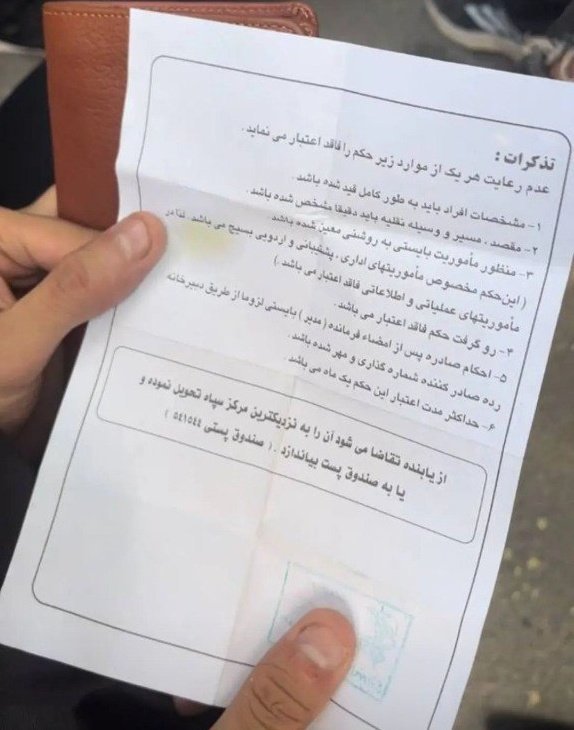 تذکرات :
عدم رعایت هر یک از موارد زیر حکم را فاقد اعتبار می نماید .
۱- مشخصات افراد باید به طور کامل قید شده باشد .
۲- مقصد ، مسیر و وسیله نقلیه باید دقیقا مشخص شده باشد .
۳- منظور مأموریت بایستی به روشنی معین شده باشد .
( این حکم مخصوص مأموریتهای اداری ، پشتیبانی و اردویی بسیج می باشد لذا در
مأموریتهای عملیاتی و اطلاعاتی فاقد اعتبار می باشد . )
۴- رو گرفت حکم فاقد اعتبار می باشد .
۵- احکام صادره پس از امضاء فرمانده ( مدیر ) بایستی لزوما از طریق دبیرخانه
رده صادر کننده شماره گذاری و مهر شده باشد .
۶- حداکثر مدت اعتبار این حکم یک ماه می باشد .
از یابنده تقاضا می شود آن را به نزدیکترین مرکز سپاه تحویل نموده و
یا به صندوق پست بیاندازد . ( صندوق پستی ۵۴۱۵۴۴ )